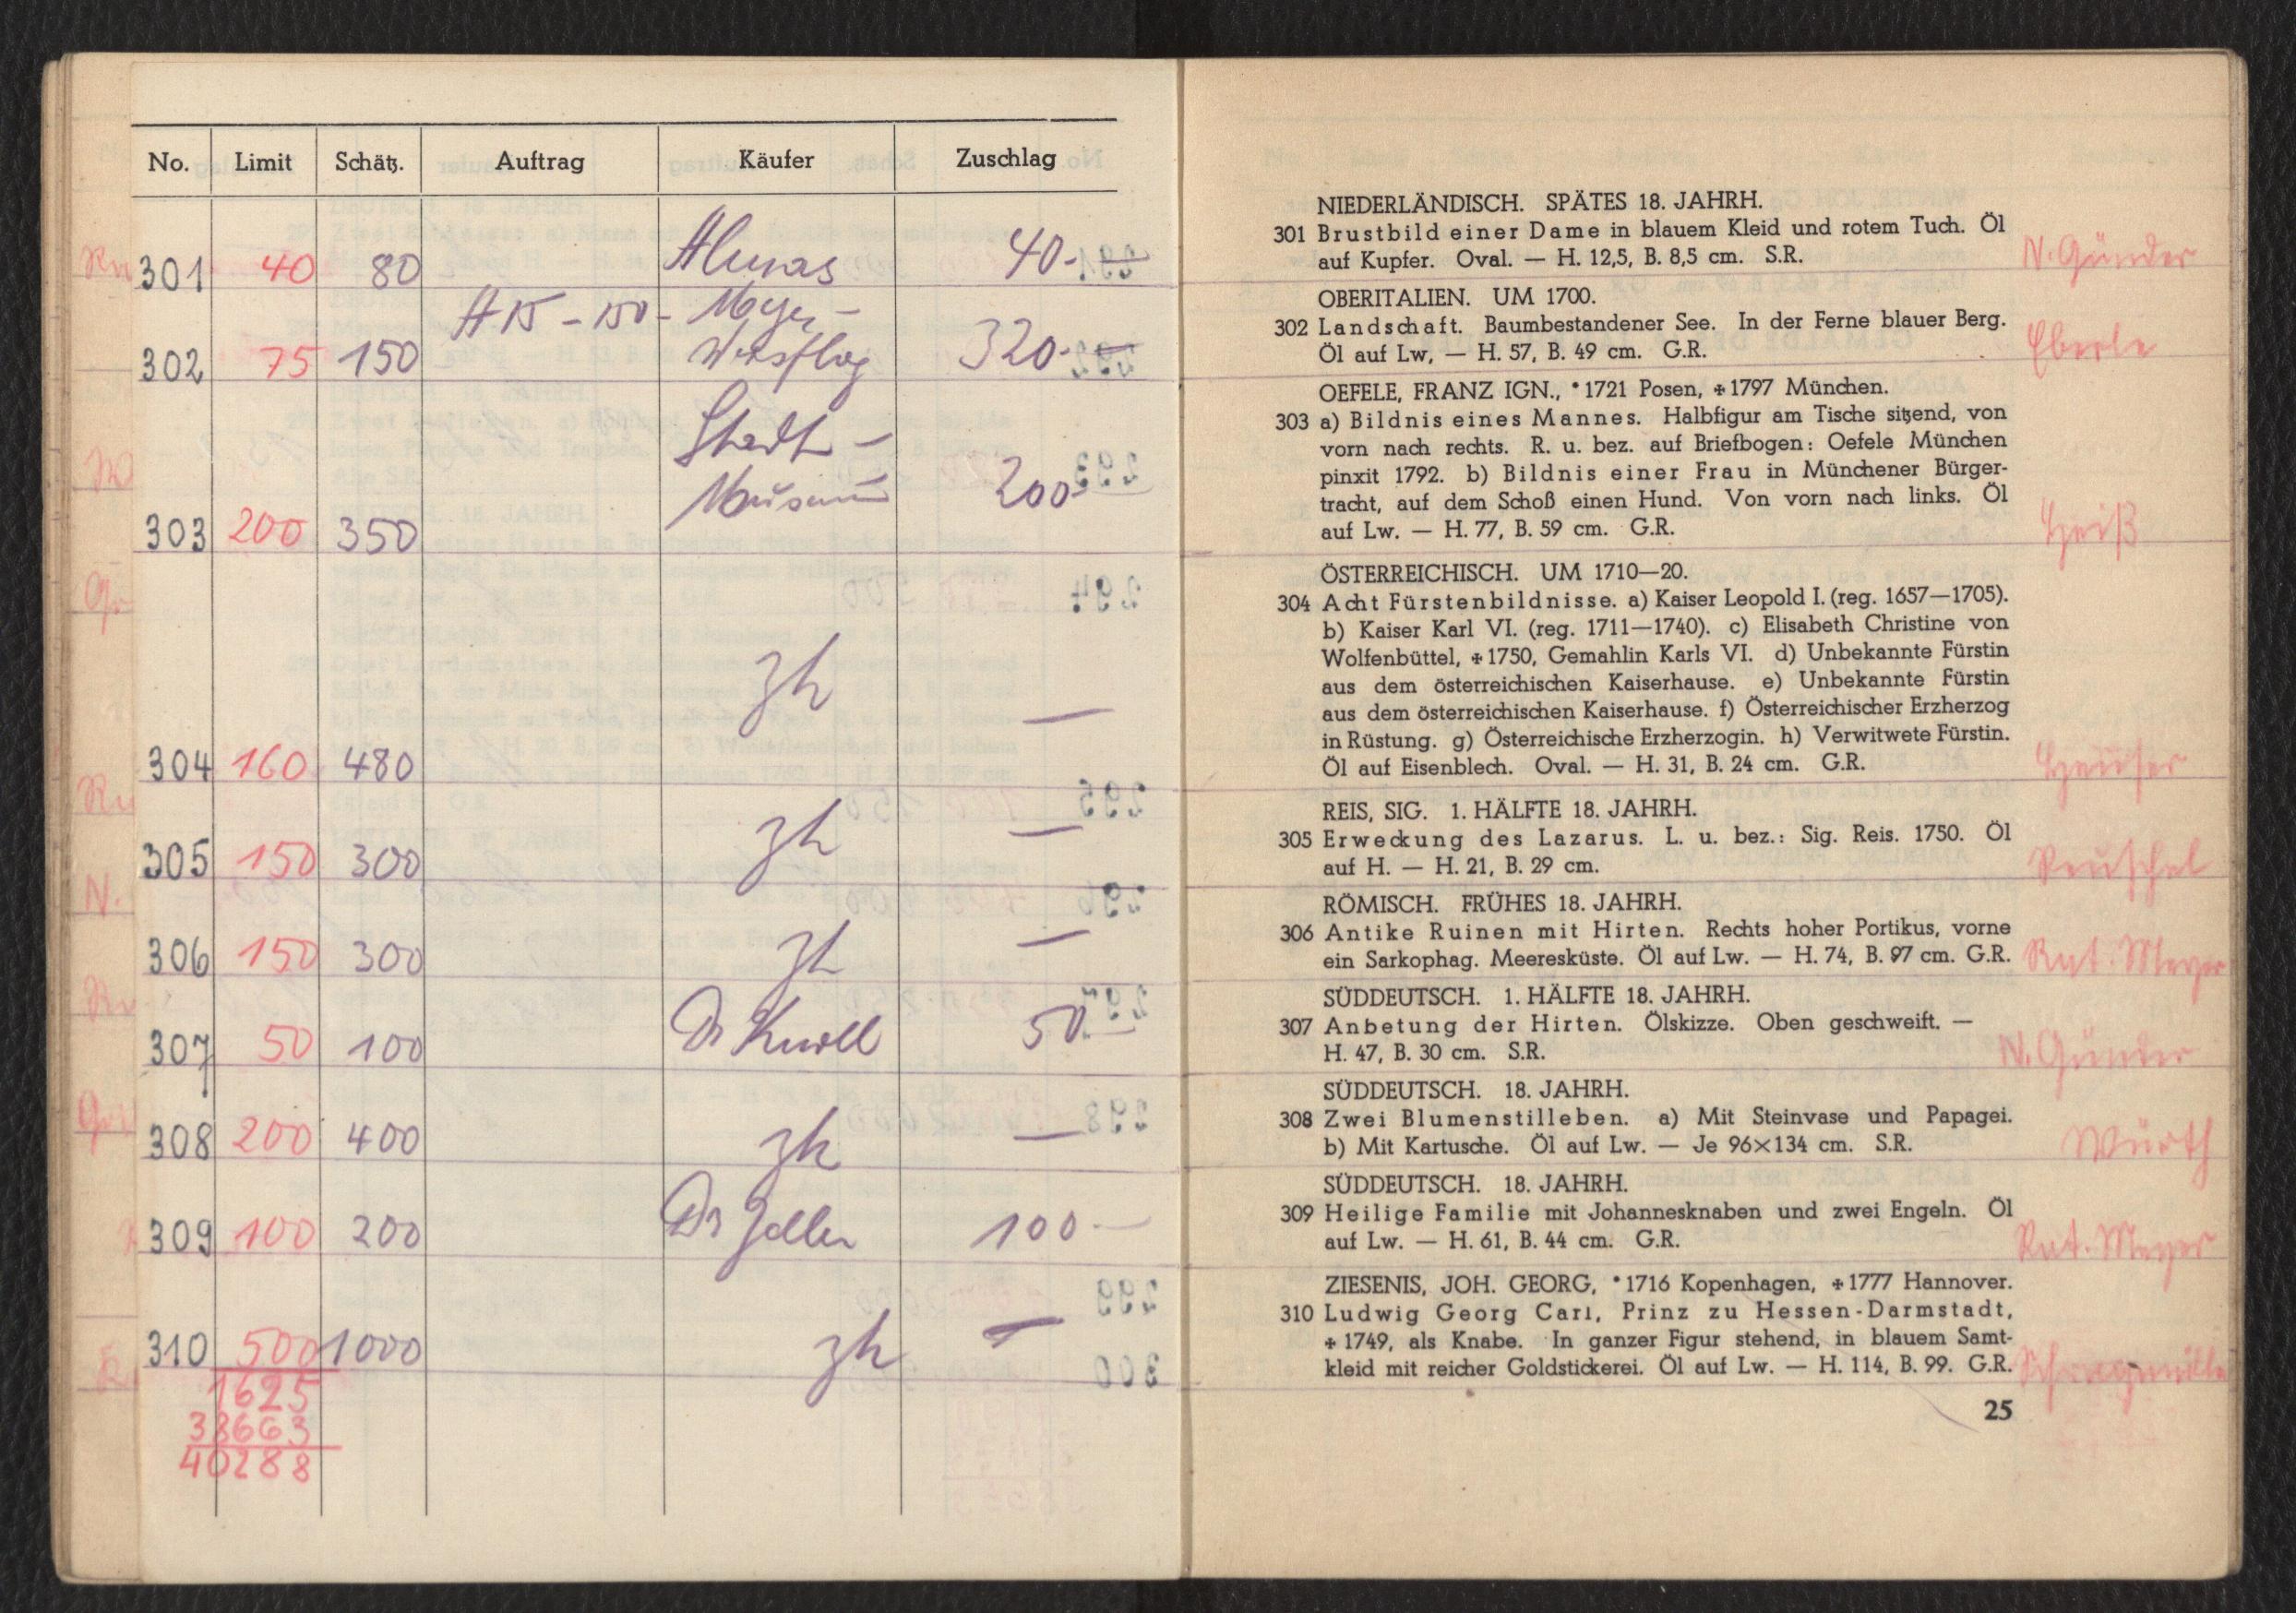 No. Limit Schätz. Auftrag Käufer Zuschlag
301 40 80 40.-
A 15 - 150 - Mayer -
302 75 150 320.-
Stadt -
Museum 200-
303 200 350
zh —
304 160 480
305 150 300 zh —
306 150 300 zh —
307 50 100 Dr Knoll 50.-
308 200 400 zh —
309 100 200 Dr 100.-
310 500 1000 zh —
1625
38663
40288
NIEDERLÄNDISCH. SPÄTES 18. JAHRH.
301 Brustbild einer Dame in blauem Kleid und rotem Tuch. Öl
auf Kupfer. Oval. — H. 12,5, B. 8,5 cm. S.R. N. Günder
OBERITALIEN. UM 1700.
302 Landschaft. Baumbestandener See. In der Ferne blauer Berg.
Öl auf Lw, — H. 57, B. 49 cm. G.R. Eberle
OEFELE, FRANZ IGN., *1721 Posen, +1797 München.
303 a) Bildnis eines Mannes. Halbfigur am Tische sitzend, von
vorn nach rechts. R. u. bez. auf Briefbogen: Oefele München
pinxit 1792. b) Bildnis einer Frau in Münchener Bürger-
tracht, auf dem Schoß einen Hund. Von vorn nach links. Öl
auf Lw. — H. 77, B. 59 cm. G.R. Heiß
ÖSTERREICHISCH. UM 1710—20.
304 Acht Fürstenbildnisse. a) Kaiser Leopold I. (reg. 1657—1705).
b) Kaiser Karl VI. (reg. 1711—1740). c) Elisabeth Christine von
Wolfenbüttel, +1750, Gemahlin Karls VI. d) Unbekannte Fürstin
aus dem österreichischen Kaiserhause. e) Unbekannte Fürstin
aus dem österreichischen Kaiserhause. f) Österreichischer Erzherzog
in Rüstung. g) Österreichische Erzherzogin. h) Verwitwete Fürstin.
Öl auf Eisenblech. Oval. — H. 31, B. 24 cm. G.R. Häußer
REIS, SIG. 1. HÄLFTE 18. JAHRH.
305 Erweckung des Lazarus. L. u. bez.: Sig. Reis. 1750. Öl
auf H. — H. 21, B. 29 cm. Reuschel
RÖMISCH. FRÜHES 18. JAHRH.
306 Antike Ruinen mit Hirten. Rechts hoher Portikus, vorne
ein Sarkophag. Meeresküste. Öl auf Lw. — H. 74, B. 97 cm. G.R. Rut. Meyer
SÜDDEUTSCH. 1. HÄLFTE 18. JAHRH.
307 Anbetung der Hirten. Ölskizze. Oben geschweift. —
H. 47, B. 30 cm. S.R. N. Günder
SÜDDEUTSCH. 18. JAHRH.
308 Zwei Blumenstilleben. a) Mit Steinvase und Papagei.
b) Mit Kartusche. Öl auf Lw. — Je 96×134 cm. S.R. Würth
SÜDDEUTSCH. 18. JAHRH.
309 Heilige Familie mit Johannesknaben und zwei Engeln. Öl
auf Lw. — H. 61, B. 44 cm. G.R. Rut. Meyer
ZIESENIS, JOH. GEORG, *1716 Kopenhagen, +1777 Hannover.
310 Ludwig Georg Carl, Prinz zu Hessen-Darmstadt,
+1749, als Knabe. In ganzer Figur stehend, in blauem Samt-
kleid mit reicher Goldstickerei. Öl auf Lw. — H. 114, B. 99. G.R.
25